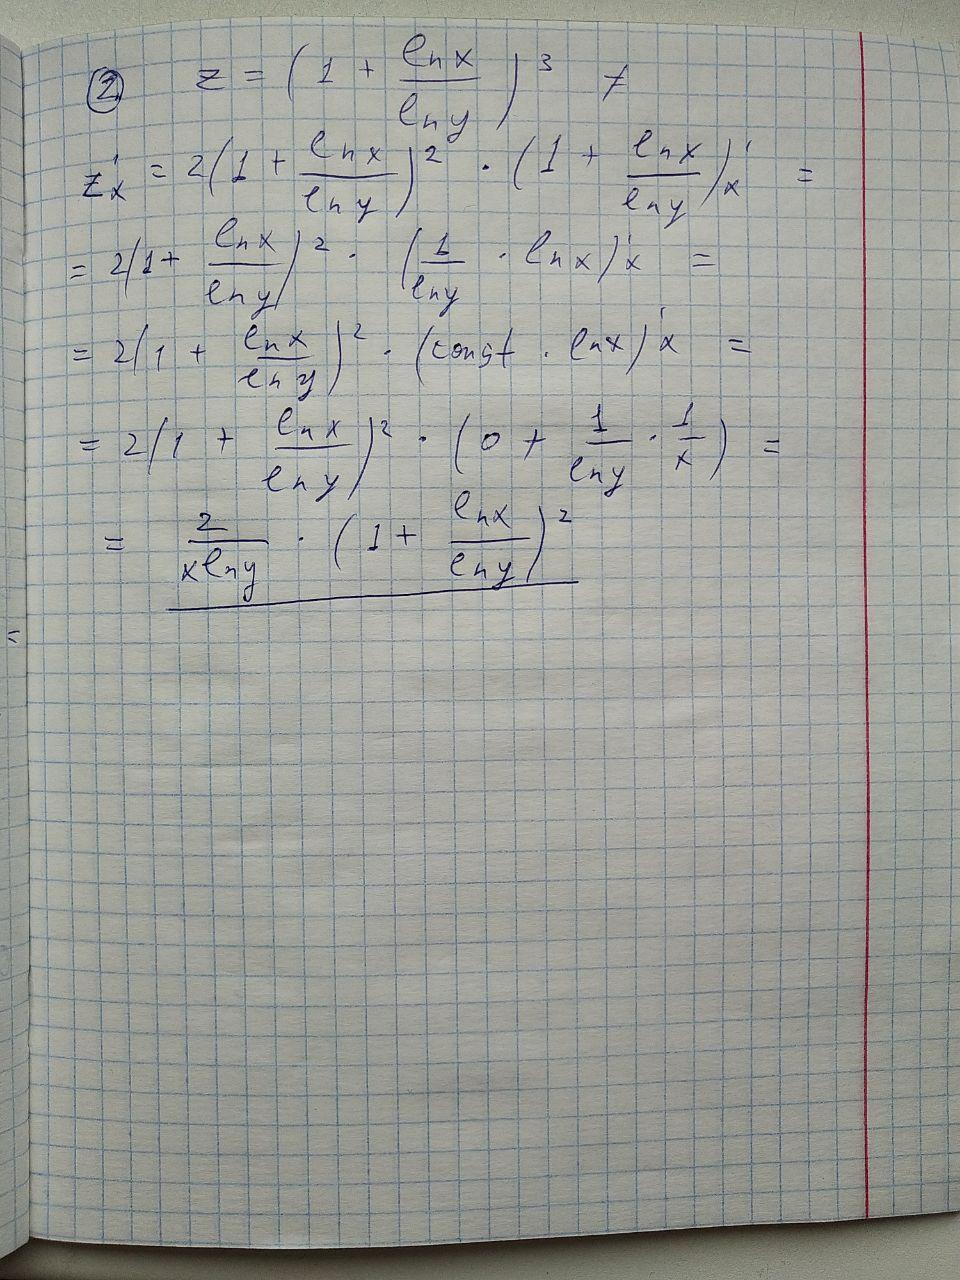 ② z = (1 + lnx/lny)^3 ≠
z'x = 2(1 + lnx/lny)^2 · (1 + lnx/lny)'x =
= 2(1 + lnx/lny)^2 · (1/lny · lnx)'x =
= 2(1 + lnx/lny)^2 · (const · lnx)'x =
= 2(1 + lnx/lny)^2 · (0 + 1/lny · 1/x) =
= 2/xlny · (1 + lnx/lny)^2
=